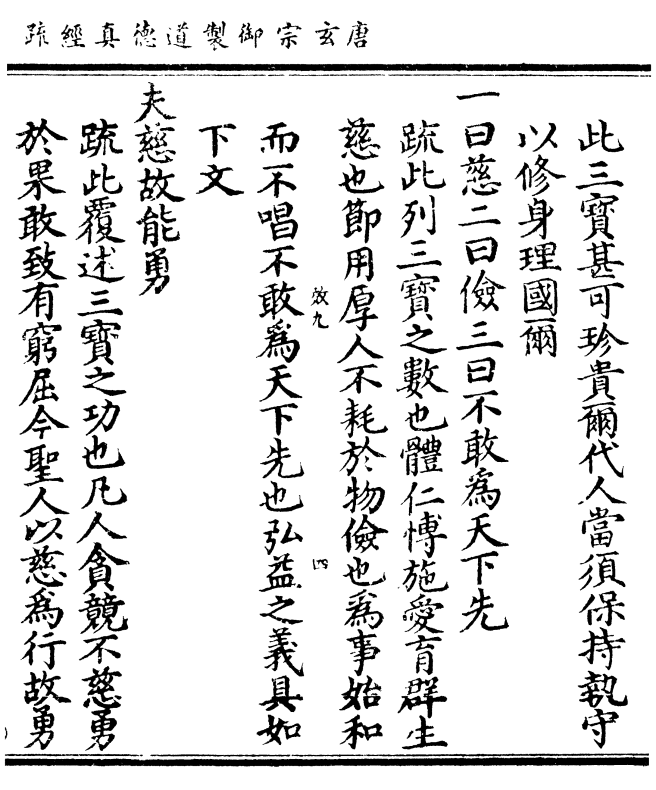 唐玄宗御製道德真經疏
此三寶甚可珍貴爾代人當須保持執守
以修身理國爾
一曰慈二曰儉三曰不敢為天下先
疏此列三寶之數也體仁博施愛育群生
慈也節用厚人不耗於物儉也為事始和
效九
四
而不唱不敢為天下先也弘益之義具如
下文
夫慈故能勇
疏此覆述三寶之功也凡人貪競不慈勇
於果敢致有窮屈今聖人以慈為行故勇